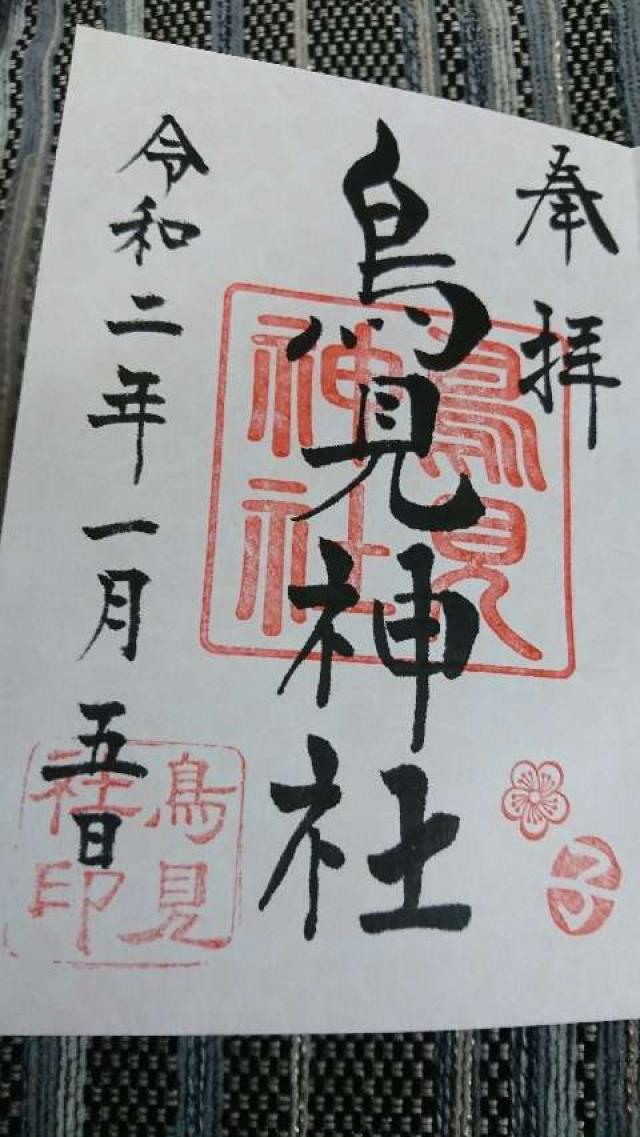 奉拝
鳥見神社
令和二年一月五日
鳥見
神社
子
鳥見
社印